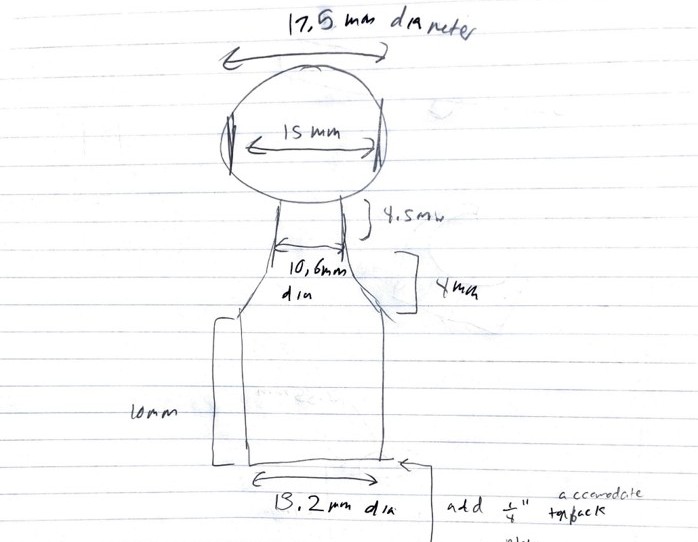 17.5 mm diameter
15 mm
4.5mm
10.6mm
dia
4mm
10mm
13.2mm dia
add 1/4" accomodate